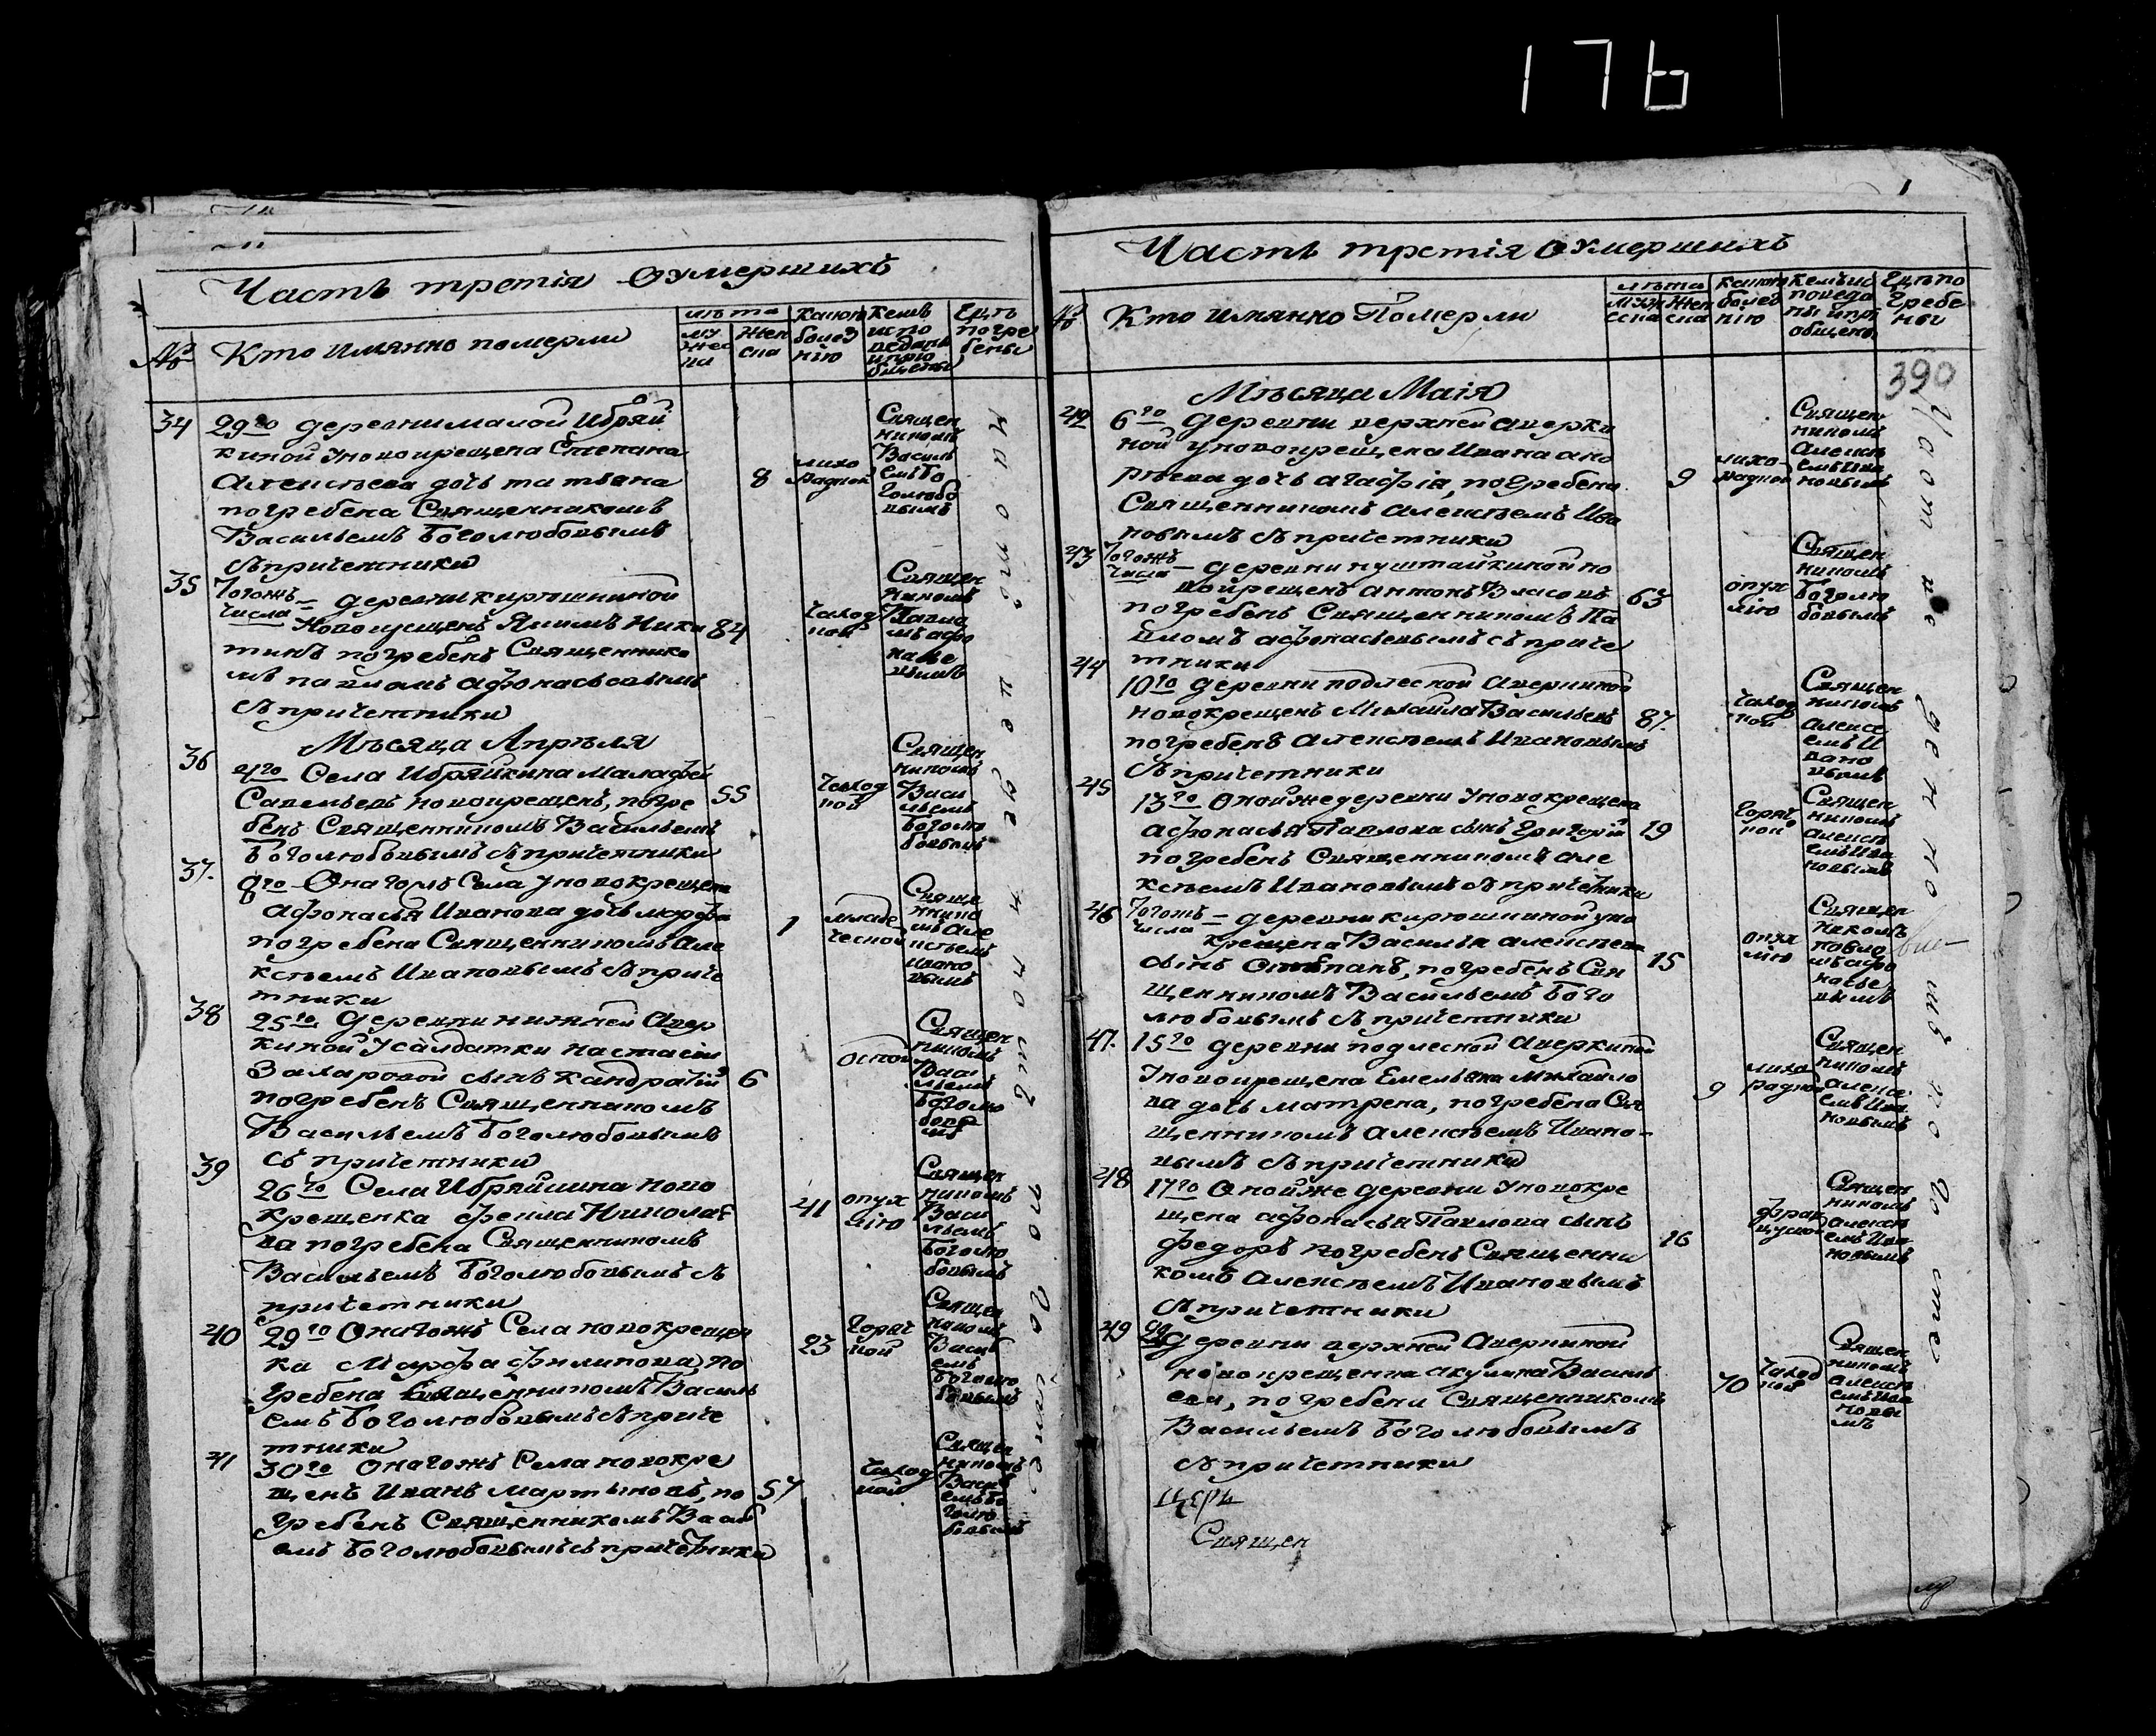 176
Часть третія о умершихъ
№
Кто имянно померли
лѣта
мужеска
женска
какою болезнію
кемъ исповеданы и приобщены
Гдѣ погребены
34
29го деревни малой Ибряй
киной у новокрещена Степана
Алексѣева дочь татьяна
погребена Священникомъ
Васильемъ Боголюбовымъ
съ причетники
8
лихо
радкой
Священ
никомъ
Василь
емъ Бо
голюбо
вымъ
35
Тогожъ
числа = деревни кирюшкиной
новокрещенъ Якимъ Ники
тинъ погребенъ Священнико
мъ павломъ афонасьевымъ
съ причетники
84
чахот
кой
Священ
никомъ
Павло
мъ афо
насье
вымъ
Мѣсяца Апрѣля
36
Села Ибряйкина Малафей
Савельевъ новокрещенъ, погре
бенъ Священникомъ Васильемъ
Боголюбовымъ съ причетники
55
чахот
кой
Священ
никомъ
Васи
льемъ
Боголю
бовымъ
37.
8го Онагожъ Села у новокрещена
афонасья Иванова дочь марфа
погребена Священникомъ Але
ксѣемъ Ивановымъ съ приче
тники
1
младе
ческой
Свяще
ннико
мъ але
ксѣемъ
Ивано
вымъ
38
25го деревни нижней Авер
киной у салдатки настасьи
Захаровой сынъ кандратій
погребенъ Священникомъ
Васильемъ Боголюбовымъ
съ причетники
6
оспой
Священ
никомъ
Васи
льемъ
Боголю
бовы
мъ
39
26го Села Ибряйкина ново
крещенка фекла Николае
ва погребена Священникомъ
Васильемъ Боголюбовымъ съ
причетники
41
опух
лію
Священ
никомъ
Васи
льемъ
Боголю
бовымъ
40
29го Онагожъ Села новокрещен
ка Марфа филипова, по
гребена Священникомъ Василь
емъ Боголюбовымъ съ приче
тники
23
горяч
кой
Священ
никомъ
Василь
емъ
Боголю
бовымъ
41
30го Онагожъ Села новокре
щенъ Иванъ мартыновъ, по
гребенъ Священникомъ Василь
емъ Боголюбовымъ съ причетники
57
чахот
кой
Священ
никомъ
Василь
емъ Бо
голю
бовымъ
На отведенномъ погосте
Часть третія о умершихъ
№
Кто имянно Померли
лѣта
мужеска
женска
какою болезнію
кемъ исповеданы и приобщены
Гдѣ погребены
390
Мѣсяца Маія
42
6го деревни верхней аверки
ной у новокрещена Ивана андрѣева дочь агафія, погребена
Священникомъ алексѣемъ Ива
новымъ съ причетники
9
лихо
радкой
Священ
никомъ
Алексѣ
емъ Ива
новымъ
43
Тогожъ
числа = деревни куштайкиной но
вокрещенъ антонъ Власовъ
погребенъ Священникомъ Па
вломъ афонасьевымъ съ приче
тники
63
опух
лію
Священ
никомъ
Боголю
бовымъ
44
10го деревни подлесной Аверкиной
новокрещенъ Михайла Васильевъ
погребенъ алексѣемъ Ивановымъ
съ причетники
87.
чахот
кой
Священ
никомъ
алексе
емъ И
вано
вымъ
45
13го Онойже деревни у новокрещена
афонасья Павлова сынъ григорій
погребенъ Священникомъ але
ксѣемъ Ивановымъ съ причетники
19
горяч
кой
Священ
никомъ
алексѣ
емъ Ива
новымъ
46
Тогожъ
числа = деревни кирюшкиной у но
крещена Василья алексѣева
сынъ Степанъ, погребенъ Свя
щенникомъ Васильемъ Бого
любовымъ съ причетники
15
опух
лію
Священ
никомъ
павло
мъ афо
насье
вымъ
47.
15го деревни подлесной Аверкиной
у новокрещена Емельяна михайло
ва дочь матрена, погребена Свя
щенникомъ алексѣемъ Ивано-
вымъ съ причетники
9
лихо
радкой
Священ
никомъ
алексѣ
емъ Ива
новымъ
48
17го Онойже деревни у новокре
щена афонасья Павлова сынъ
федоръ погребенъ Священни
комъ алексѣемъ Ивановымъ
съ причетники
16
Священ
никомъ
алексѣ
емъ Ива
новымъ
49
деревни верхней Аверкиной
новокрещенка акулина Василь
ева, погребена Священникомъ
Васильемъ Боголюбовымъ
съ причетники
70
чахот
кой
Священ
никомъ
алексѣ
емъ Ива
новы
мъ
Церк
Священ
На отведенномъ погосте